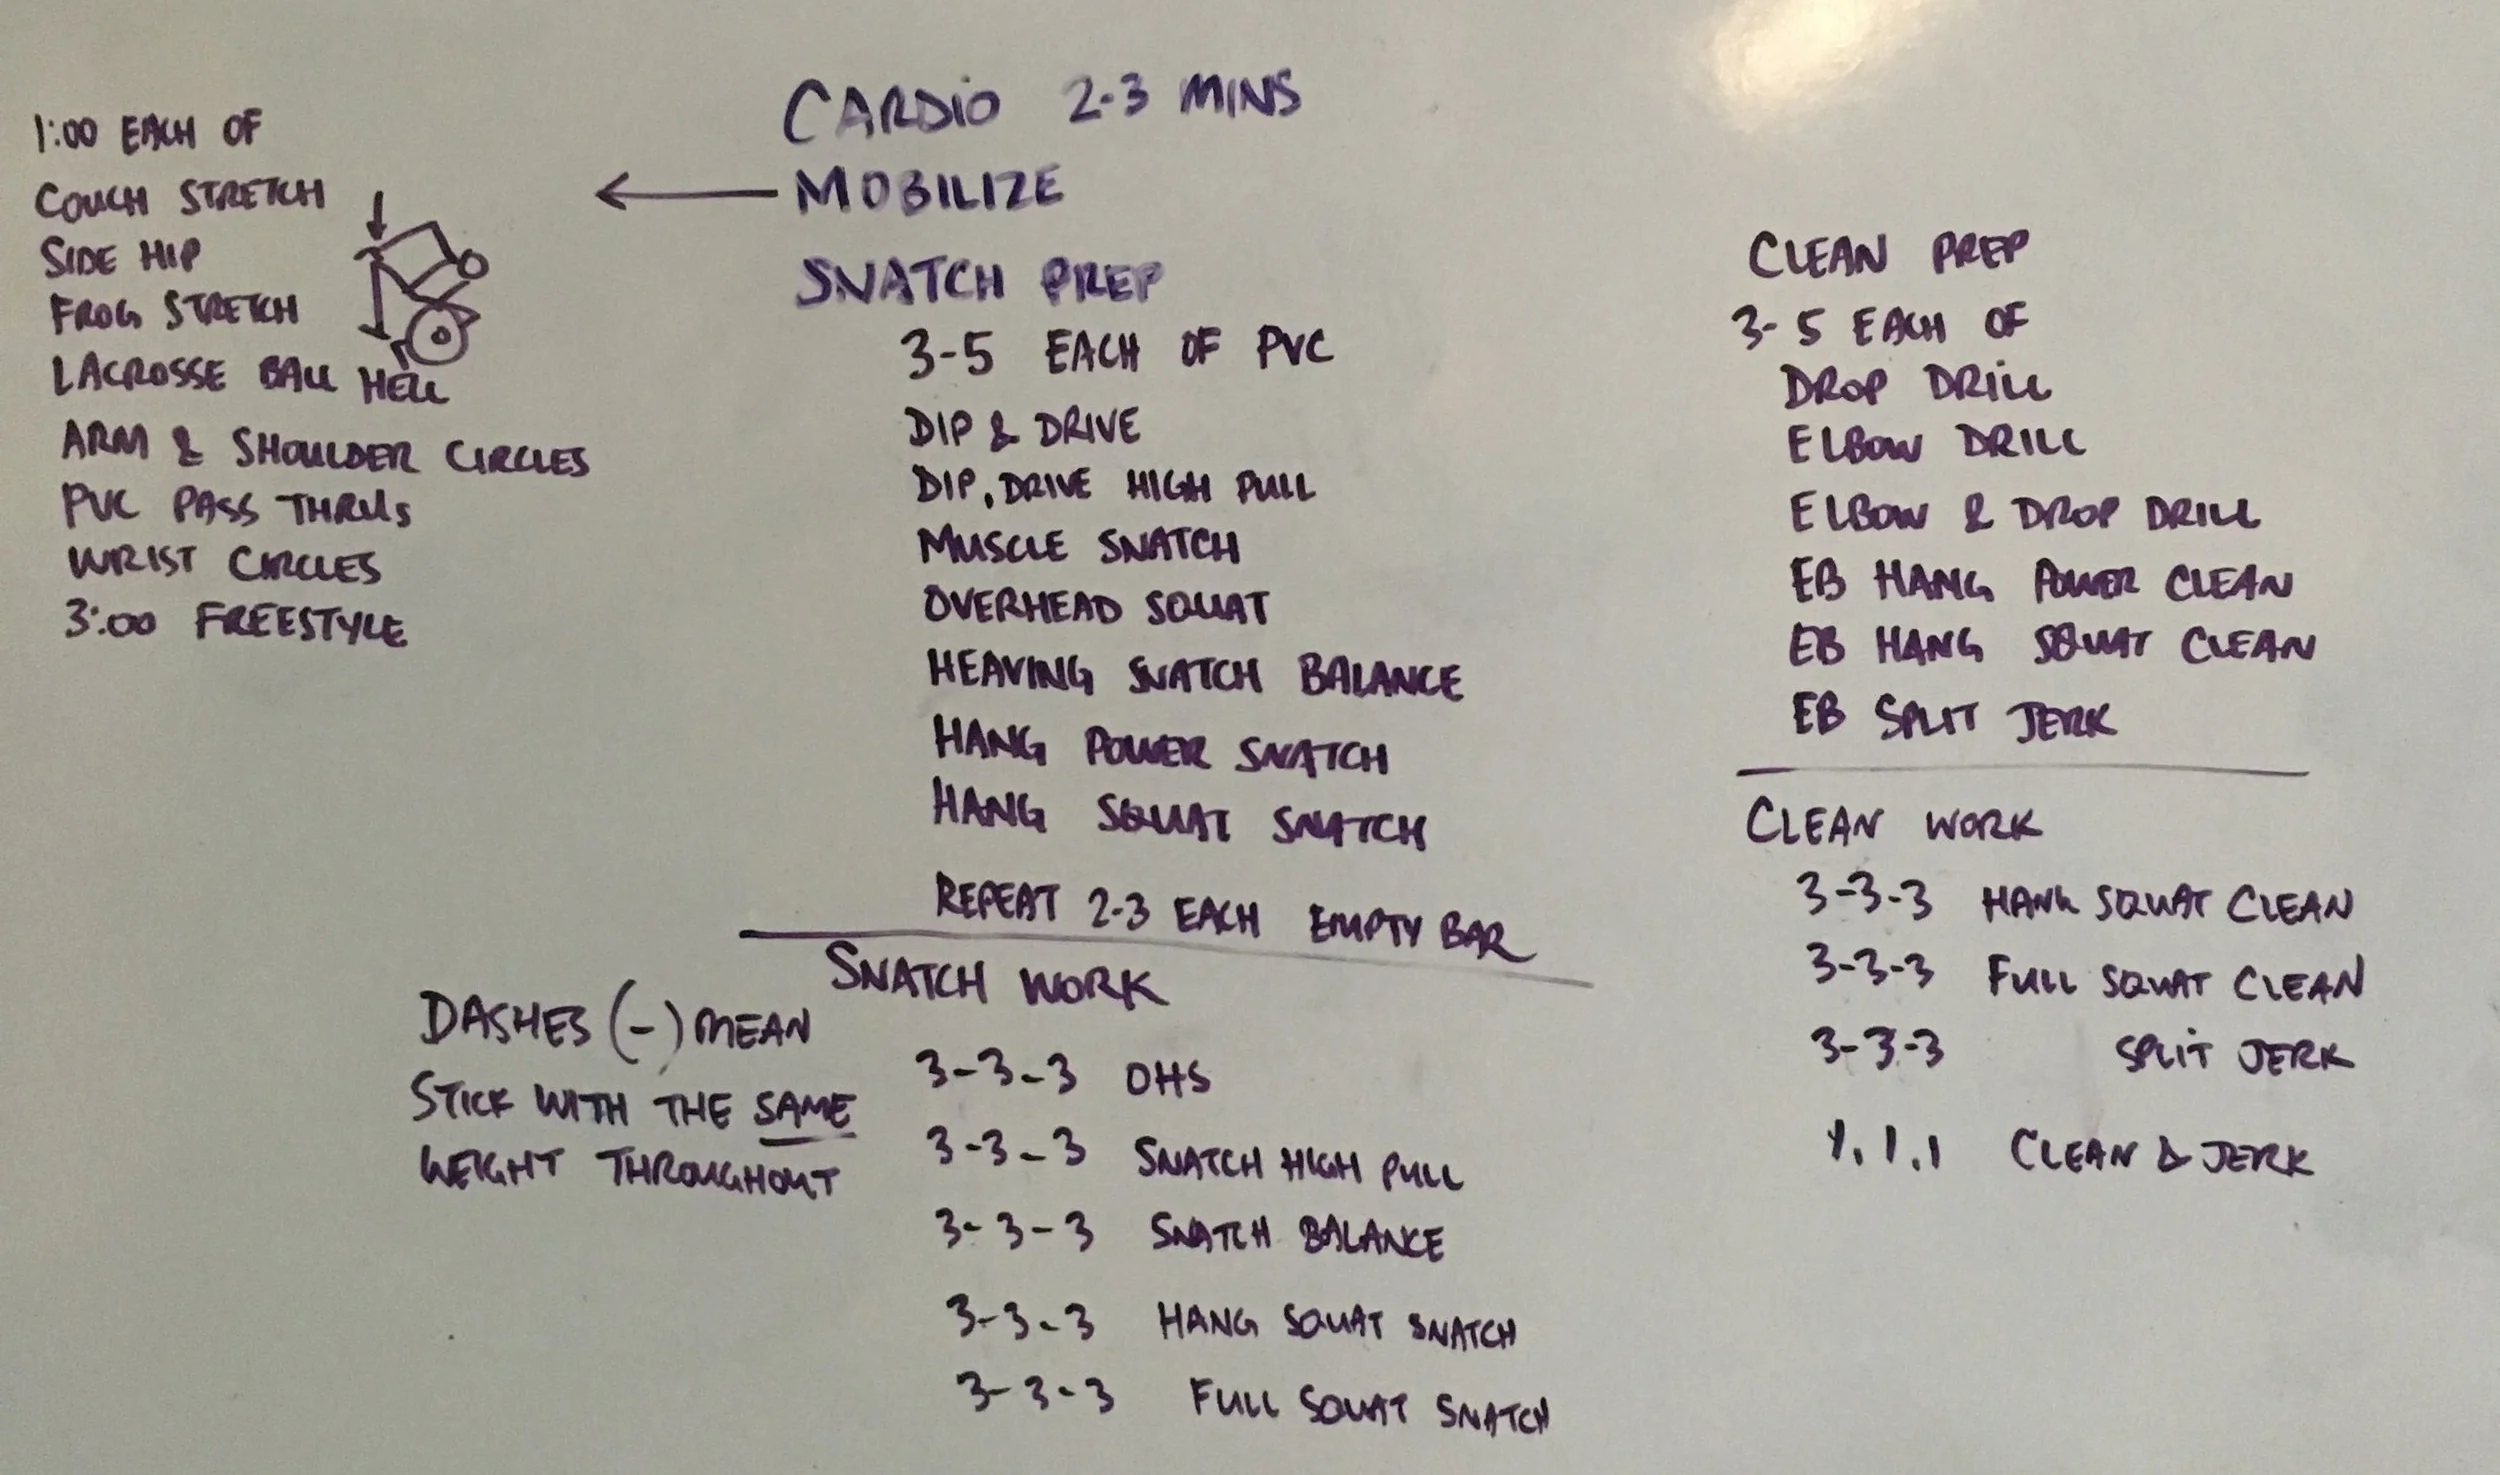 CARDIO 2-3 MINS
MOBILIZE
1:00 EACH OF
COUCH STRETCH
SIDE HIP
FROG STRETCH
LACROSSE BALL HELL
ARM & SHOULDER CIRCLES
PVC PASS THRUS
WRIST CIRCLES
3:00 FREESTYLE
SNATCH PREP
3-5 EACH OF PVC
DIP & DRIVE
DIP, DRIVE HIGH PULL
MUSCLE SNATCH
OVERHEAD SQUAT
HEAVING SNATCH BALANCE
HANG POWER SNATCH
HANG SQUAT SNATCH
REPEAT 2-3 EACH EMPTY BAR
SNATCH WORK
DASHES (-) MEAN
STICK WITH THE SAME
WEIGHT THROUGHOUT
3-3-3 OHS
3-3-3 SNATCH HIGH PULL
3-3-3 SNATCH BALANCE
3-3-3 HANG SQUAT SNATCH
3-3-3 FULL SQUAT SNATCH
CLEAN PREP
3-5 EACH OF
DROP DRILL
ELBOW DRILL
ELBOW & DROP DRILL
EB HANG POWER CLEAN
EB HANG SQUAT CLEAN
EB SPLIT JERK
CLEAN WORK
3-3-3 HANG SQUAT CLEAN
3-3-3 FULL SQUAT CLEAN
3-3-3 SPLIT JERK
1,1,1 CLEAN & JERK